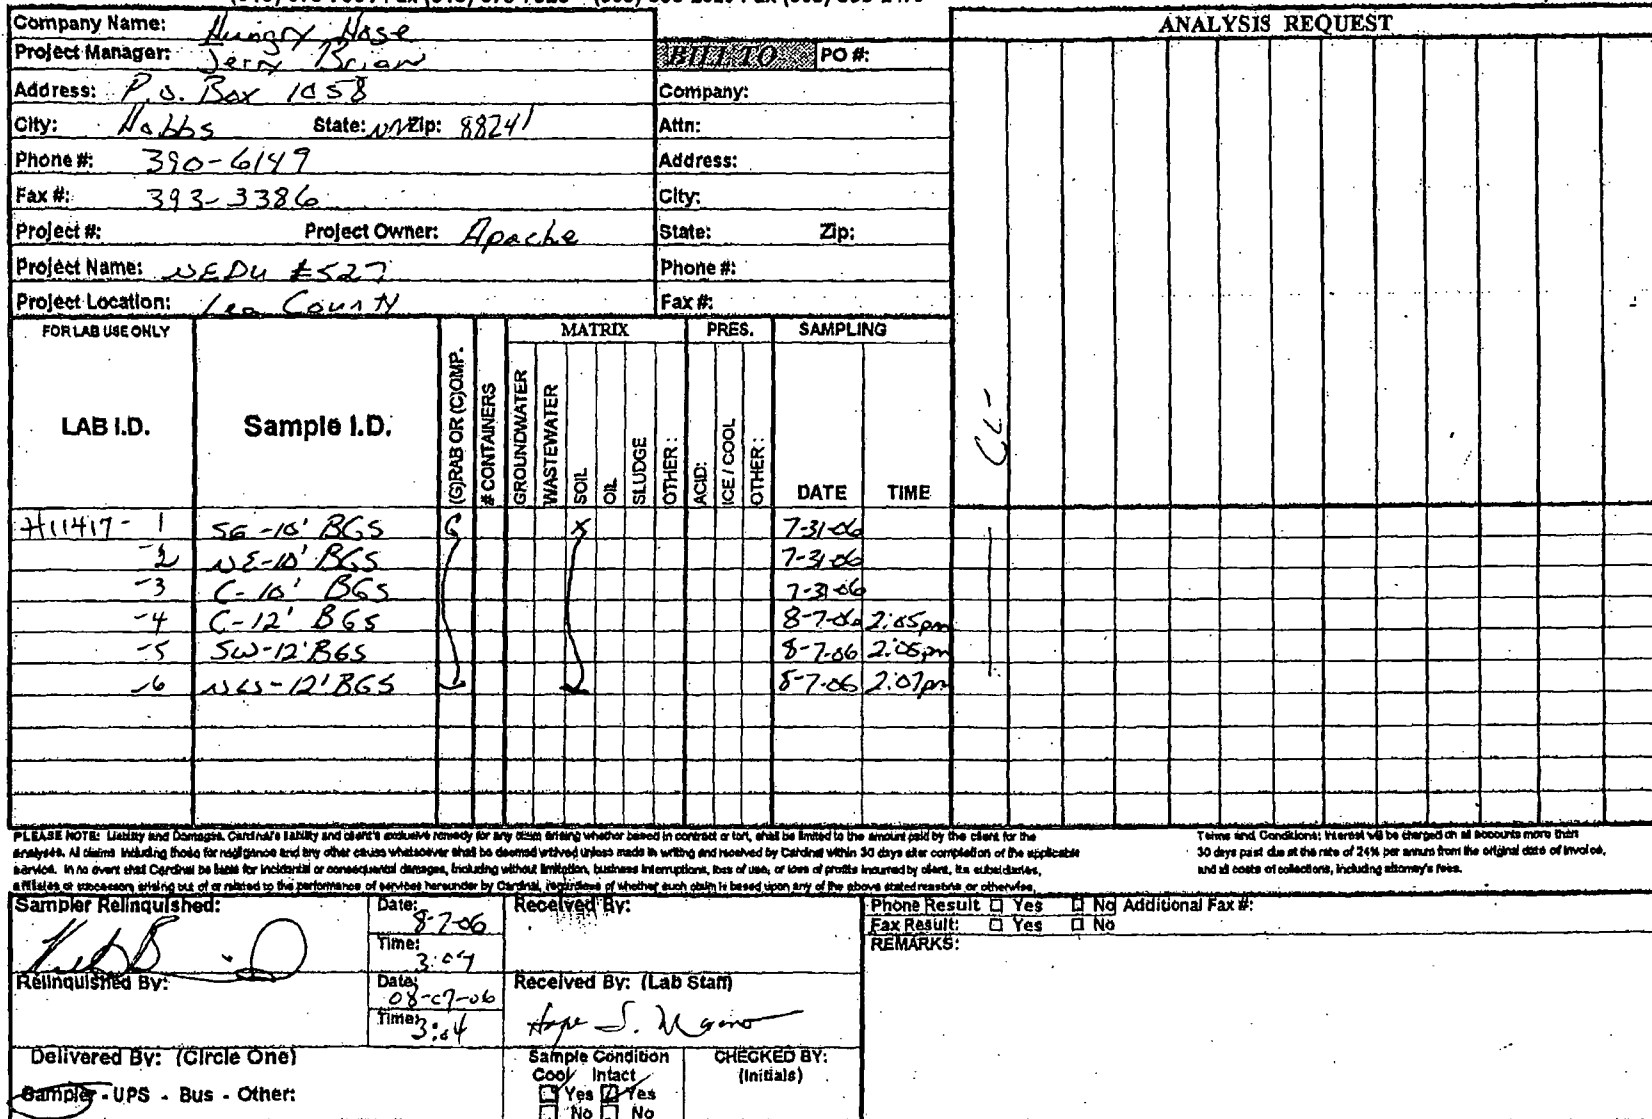 ANALYSIS REQUEST
Company Name: Hungry Hose
Project Manager: Jerry Brian
BILL TO PO #:
Address: P.O. Box 1058
Company:
City: Hobbs State: NM Zip: 88241
Attn:
Phone #: 390-6149
Address:
Fax #: 393-3386
City:
Project #: Project Owner: Apache
State: Zip:
Project Name: NEDU #527
Phone #:
Project Location: Lea County
Fax #:
FOR LAB USE ONLY
MATRIX PRES. SAMPLING
LAB I.D. Sample I.D. (G)RAB OR (C)OMP. # CONTAINERS GROUNDWATER WASTEWATER SOIL OIL SLUDGE OTHER : ACID: ICE / COOL OTHER : DATE TIME CL-
H11417- 1 SE-10' BGS G X 7-31-06
-2 NE-10' BGS 7-31-06
-3 C-10' BGS 7-31-06
-4 C-12' BGS 8-7-06 2:05pm
-5 SW-12' BGS 8-7-06 2:06pm
-6 NW-12' BGS 8-7-06 2:07pm
PLEASE NOTE: Liability and Damages. Cardinal's liability and client's exclusive remedy for any claim arising whether based in contract or tort, shall be limited to the amount paid by the client for the
analyses. All claims including those for negligence and any other cause whatsoever shall be deemed waived unless made in writing and received by Cardinal within 30 days after completion of the applicable
service. In no event shall Cardinal be liable for incidental or consequental damages, including without limitation, business interruptions, loss of use, or loss of profits incurred by client, its subsidiaries,
affiliates or successors arising out of or related to the performance of services hereunder by Cardinal, regardless of whether such claim is based upon any of the above stated reasons or otherwise.
Terms and Conditions: Interest will be charged on all accounts more than
30 days past due at the rate of 24% per annum from the original date of invoice,
and all costs of collections, including attorney's fees.
Sampler Relinquished:
Date: 8-7-06
Time:
Received By:
Phone Result □ Yes □ No Additional Fax #:
Fax Result: □ Yes □ No
REMARKS:
Relinquished By:
Date: 08-07-06
Time: 3:04
Received By: (Lab Staff)
Hope S. Moreno
Delivered By: (Circle One)
Sampler - UPS - Bus - Other:
Sample Condition
Cool Intact
Yes Yes
No No
CHECKED BY:
(Initials)